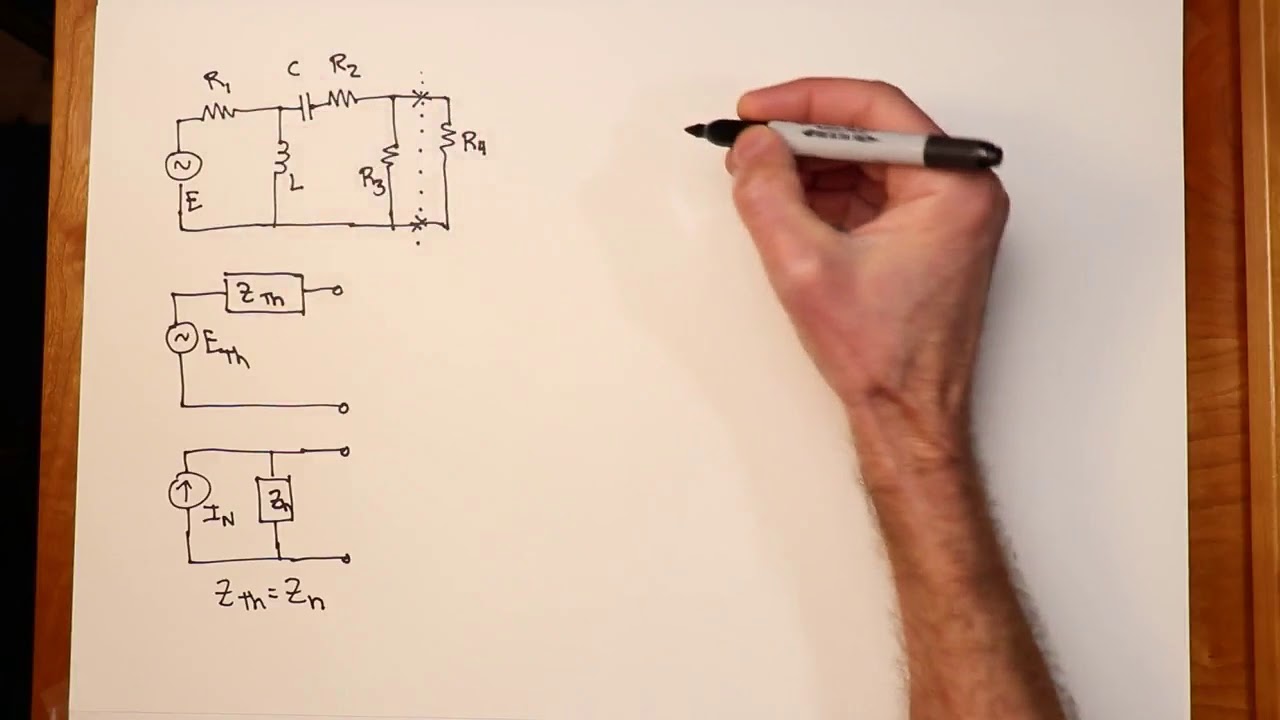 R1
C
R2
E
L
R3
R4
~
ZTh
~
ETh
IN
Zn
ZTh = Zn